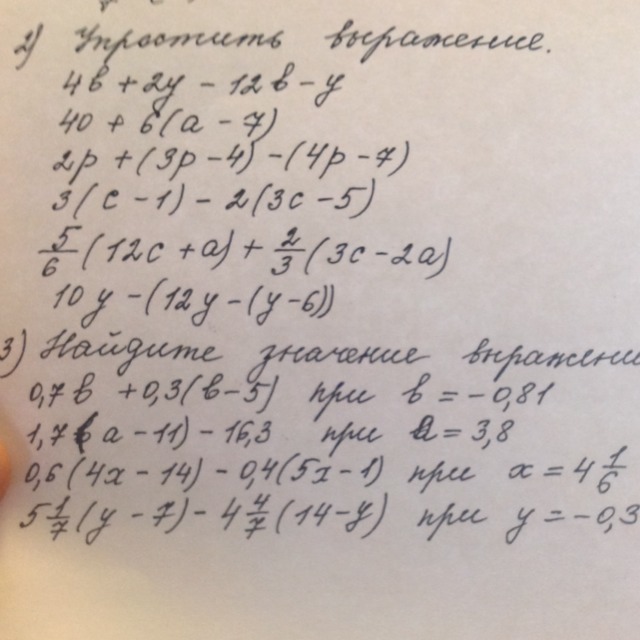 2) Упростить выражение.
4в + 2y - 12в - y
40 + 6(a - 7)
2p + (3p - 4) - (4p - 7)
3(c - 1) - 2(3c - 5)
5/6 (12c + a) + 2/3 (3c - 2a)
10y - (12y - (y - 6))
3) Найдите значение выражени
0,7в + 0,3(в - 5) при в = -0,81
1,7(a - 11) - 16,3 при a = 3,8
0,6(4x - 14) - 0,4(5x - 1) при x = 4 1/6
5 1/7 (y - 7) - 4 4/7 (14 - y) при y = -0,3